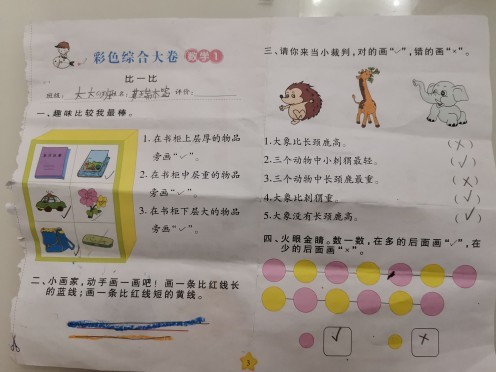 彩色综合大卷 数学1
比一比
班级： 大大班 姓名： 评价：
一、趣味比较我最棒。
1.在书柜上层厚的物品
旁画“✓”。
2.在书柜中层重的物品
旁画“✓”。
3.在书柜下层大的物品
旁画“✓”。
二、小画家，动手画一画吧！画一条比红线长
的蓝线；画一条比红线短的黄线。
三、请你来当小裁判，对的画“✓”，错的画“×”。
1.大象比长颈鹿高。 （×）
2.三个动物中小刺猬最轻。 （✓）
3.三个动物中长颈鹿最重。 （×）
4.大象比刺猬重。 （✓）
5.大象没有长颈鹿高。 （✓）
四、火眼金睛。数一数，在多的后面画“✓”，在
少的后面画“×”。
✓ ×